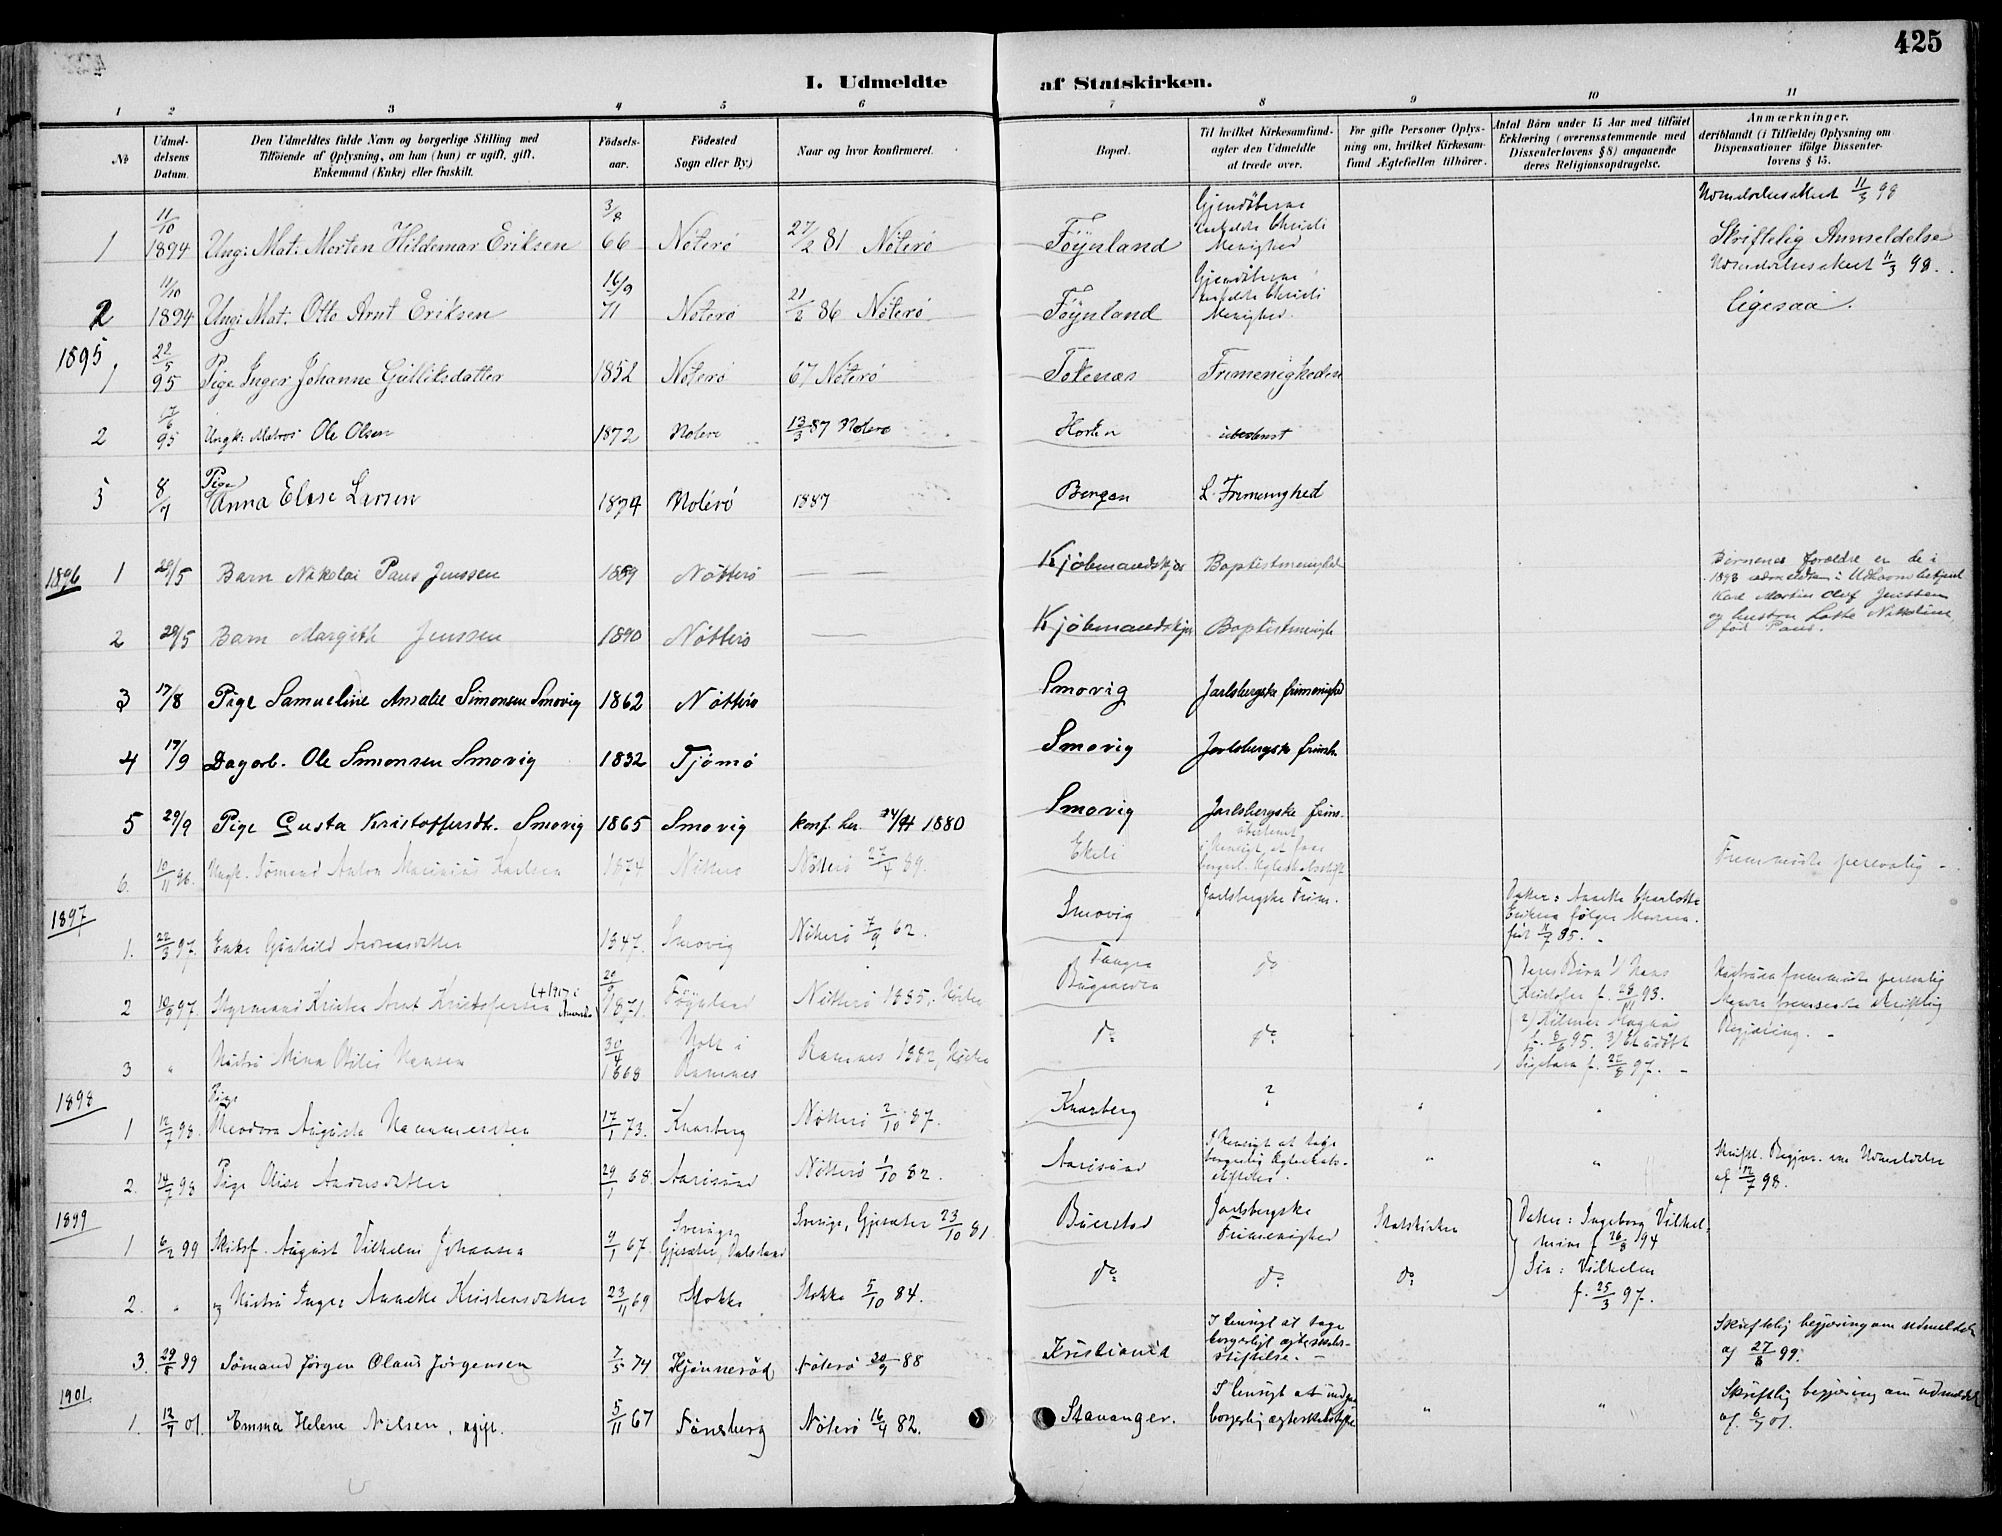 425
I. Udmeldte af Statskirken.
1 2 3 4 5 6 7 8 9 10 11
No
Udmel-
delsens
Datum.
Den Udmeldtes fulde Navn og borgerlige Stilling med
Tilföiende af Oplysning, om han (hun) er ugift, gift.
Enkemand (Enke) eller fraskilt.
Födsels-
aar.
Födested
Sogn eller By.)
Naar og hvor konfirmeret.
Bopæl.
Til hvilket Kirkesamfund-
agter den Udmeldte
at træde over.
For gifte Personer Oplys-
ning om, hvilket Kirkesam-
fund Ægtefællen tilhörer.
Antal Börn under 15 Aar med tilföiet
Erklæring (overensstemmende med
Dissenterlovens § 8) angaaende
deres Religionsopdragelse.
Anmærkninger.
deriblandt (i Tilfælde) Oplysning om
Dispensationer ifölge Dissenter-
lovens § 15.
1 11/10 1894 Ung: Mat: Morten Hildemar Eriksen 3/8 66 Nöterö 27/2 81 Nöterö Föynland
Christi
Menighed
11/3 98
Skriftelig Anmeldelse
2 11/10 1894 Ung: Mat: Otto Arnt Eriksen 16/9 71 Nöterö 21/2 86 Nöterö Föynland
Christi
Menighed
11/3 98.
ligesaa.
1895
1 22/5 95 Pige Inger Johanne Gulliksdatter 1852 Nöterö 67 Nöterö Tokenæs Frimenigheden
2 17/6 95 Ungk: Matros Ole Olsen 1872 Nöterö 13/3 87 Nöterö Horten ubestemt
3 8/7 Pige Anna Elise Larsen 1874 Nöterö 1887 Bergen L. Frimenighed
1896
1 28/5 Barn Nikolai Paus Jenssen 1889 Nötterö Kjöbmandskjær Baptistmenighed
Börnenes forældre er de i
1893 udmeldte
Karl Martin Olaf Jenssen
og hustru Lotte Nikoline
född Paus.
2 28/5 Barn Margith Jenssen 1890 Nötterö Kjöbmandskjær Baptistmenigh
3 17/8 Pige Samueline Amalie Simonsen Smovig 1862 Nötterö Smovig Jarlsbergske frimenighed
4 17/9 Dagarb. Ole Simonsen Smovig 1832 Tjömö Smovig Jarlsbergske frimh.
5 29/9 Pige Gusta Kristoffersdt. Smovig 1865 Smovig konf. her 24/ 1880 Smovig Jarlsbergske frim.
6. 10/11 96. Ungk. Sömand Anton Marinius Karlsen 1874 Nötterö Nötterö 27/4 89. Ekeli
ubestemt
Fremmödte personlig -
1897
1. 22/3 97. Enke Gunhild Andreasdatter 1847. Smovig Nötterö 7/9 62. Smovig Jarlsbergske Frim.
Datter: Annette Charlotte
Eriksen fölger Moderen.
95.
2 10/9 97. Styrmand Kristen Arnt Kristofersen 1871. Föynland Nötterö 1885. do
Deres Börn 1/ Hans
Kristofer f. 28/ 93.
2/ Hilmar Magnus
95. 3/ Et udöbt
Pigebarn f. 22/8 97. -
fremmödte personlig
skriftlig
Begjæring. -
3 " Hustru Mina Otilie Hansen 30/4 1868 Holt i Ramnes Ramnes 1882, do do
1898
1 12/7 98. Pige Theodora Augusta Hammersten 17/1 73. Knarberg Nötterö 2/10 87. Knarberg ? " "
2. 14/7 98 Pige Olise Andersdatter 29/1 68. Aarösund Nötterö 1/10 82. Aarösund
I Hensigt at tage
borgerlig Ægteskabs-
stiftelse.
" "
Skriftl. Begjær. om Udmeldelse
af 12/7 98.
1899
1 6/2 99 Skibsf. August Vilhelm Johansen 9/1 67. Sverige, Gjesæter, Dalsland Sverige, Gjesæter 23/10 81 Buerstad Jarlsbergske Frimenighed Statskirken
Datter: Ingeborg Vilhel-
mine f. 26/8 94
Sön: Vilhelm
f. 25/3 97.
2. " og Hustru Inger Annette Kristensdatter 23/11 69 Stokke Stokke 5/10 84. do do do
3. 29/8 99 Sömand Jörgen Olaus Jörgensen 7/5 74 Hjönneröd Nöterö 30/9 88 Kristiania
I hensigt at tage
borgerligt ægteskabs-
stiftelse. -
" "
Skriftelig begjæring om udmeldelse
af 27/8 99.
1901.
1. 12/7 01. Emma Helene Nilsen, ugift. 5/11 67 Tönsberg Nöterö 16/4 82. Stavanger.
I hensigt at indgaa
borgerlig ægteskabstifte
" "
Skriftlig begjæring om udmeldelse
af. 6/7 01.